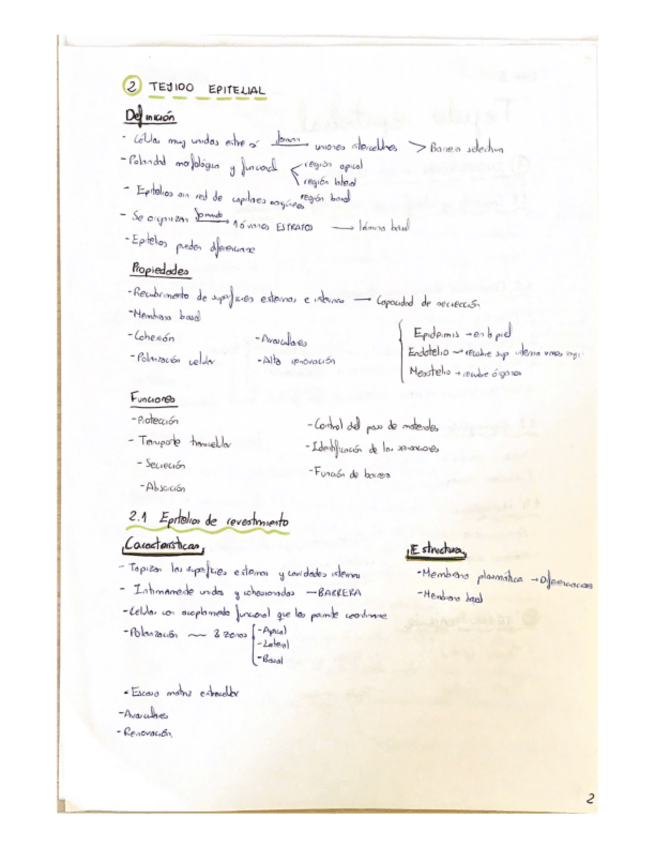 2 TEJIDO EPITELIAL
Definición
- Células muy unidas entre sí forman uniones intercelulares > Barrera selectiva
- Polaridad morfológica y funcional < región apical
región lateral
región basal
- Epitelios sin red de capilares
- Se organizan formando 1 ó varios ESTRATOS → lámina basal
- Epitelios pueden diferenciarse
Propiedades
- Recubrimiento de superficies externas e internas → Capacidad de secreción
- Membrana basal
- Cohesión - Avasculares
- Polarización celular - Alta renovación
Epidermis → en la piel
Endotelio → recubre sup interna vasos
Mesotelio → recubre órganos
Funciones
- Protección
- Transporte transcelular
- Secreción
- Absorción
- Control del paso de materiales
- Identificación de las sensaciones
- Función de barrera
2.1 Epitelios de revestimiento
Características
- Tapizan las superficies externas y cavidades internas
- Intimamente unidas y cohesionadas — BARRERA
- Células con acoplamiento funcional que les permite coordinarse
- Polarización ~ 3 zonas [ - Apical
- Lateral
- Basal
- Escasa matriz extracelular
- Avasculares
- Renovación
Estructura
- Membrana plasmática → Diferenciaciones
- Membrana basal
2